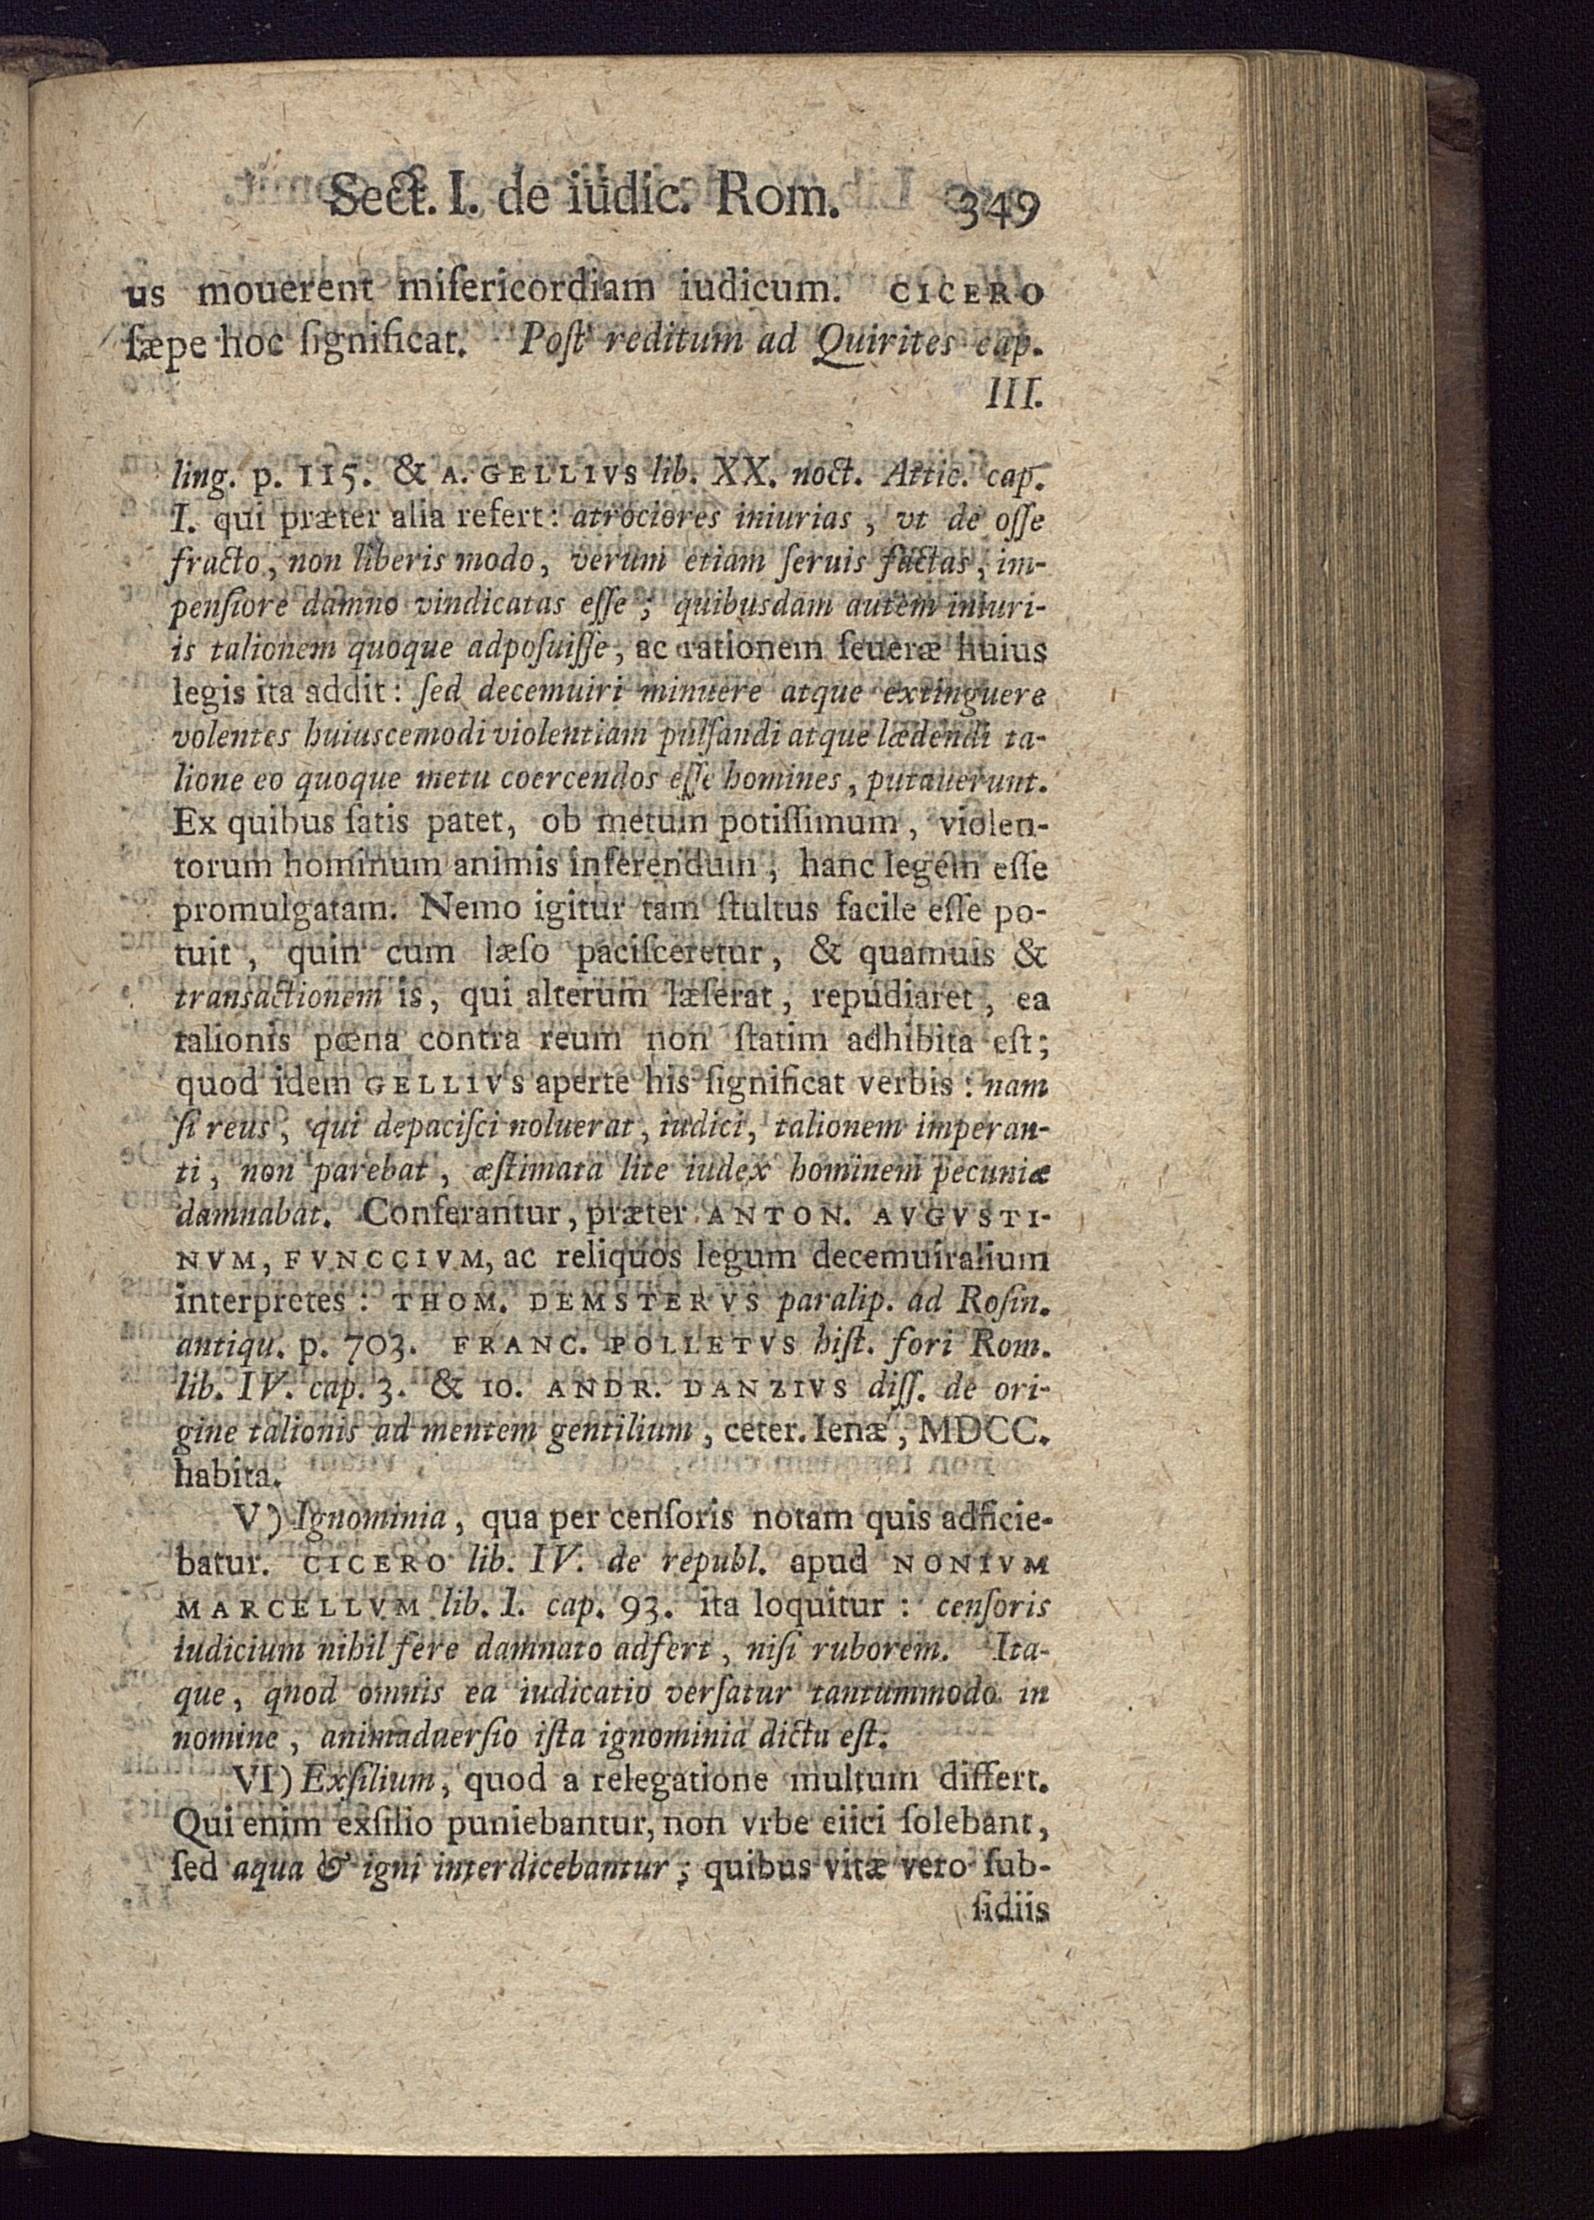 Sect. I. de iudic. Rom. 349
us mouerent miſericordiam iudicum. CICERO
ſæpe hoc ſignificat. Poſt reditum ad Quirites cap.
III.
ling. p. 115. & A. GELLIVS lib. XX. noct. Attic. cap.
I. qui præter alia refert: atrociores iniurias, vt de oſſe
fracto, non liberis modo, verum etiam ſeruis factas, im-
penſiore damno vindicatas eſſe; quibusdam autem iniuri-
is talionem quoque adpoſuiſſe, ac rationem ſeueræ huius
legis ita addit: ſed decemuiri minuere atque extinguere
volentes huiuscemodi violentiam pulſandi atque lædendi ta-
lione eo quoque metu coercendos eſſe homines, putauerunt.
Ex quibus ſatis patet, ob metum potiſſimum, violen-
torum hominum animis inferendum, hanc legem eſſe
promulgatam. Nemo igitur tam ſtultus facile eſſe po-
tuit, quin cum læſo paciſceretur, & quamuis &
transactionem is, qui alterum læſerat, repudiaret, ea
talionis pœna contra reum non ſtatim adhibita eſt;
quod idem GELLIVS aperte his ſignificat verbis: nam
ſi reus, qui depaciſci noluerat, iudici, talionem imperan-
ti, non parebat, æſtimata lite iudex hominem pecuniæ
damnabat. Conferantur, præter ANTON. AVGVSTI-
NVM, FVNCCIVM, ac reliquos legum decemuiralium
interpretes: THOM. DEMSTERVS paralip. ad Roſin.
antiqu. p. 703. FRANC. POLLETVS hiſt. fori Rom.
lib. IV. cap. 3. & 10. ANDR. DANZIVS diſſ. de ori-
gine talionis ad mentem gentilium, ceter. Ienæ, MDCC.
habita.
V) Ignominia, qua per cenſoris notam quis adficie-
batur. CICERO lib. IV. de republ. apud NONIVM
MARCELLVM lib. I. cap. 93. ita loquitur: cenſoris
iudicium nihil fere damnato adfert, niſi ruborem. Ita-
que, quod omnis ea iudicatio verſatur tantummodo in
nomine, animaduerſio iſta ignominia dicta eſt.
VI) Exſilium, quod a relegatione multum differt.
Qui enim exſilio puniebantur, non vrbe eiici ſolebant,
ſed aqua & igni interdicebantur; quibus vitæ vero ſub-
ſidiis